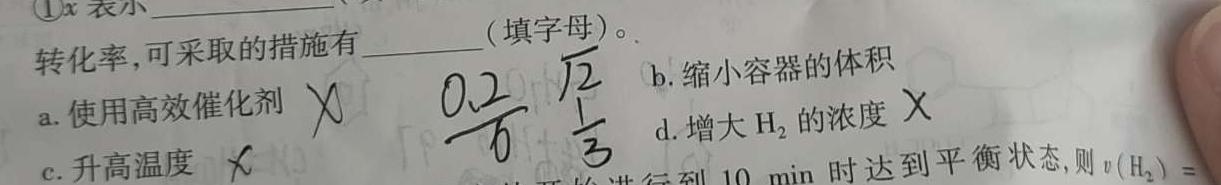 ①x 表示
转化率,可采取的措施有______(填字母)。
a. 使用高效催化剂 X 0.2/6 √2 b. 缩小容器的体积
c. 升高温度 X 1/3 d. 增大 H₂ 的浓度 X
进行到 10 min 时达到平衡状态,则 v(H₂) =